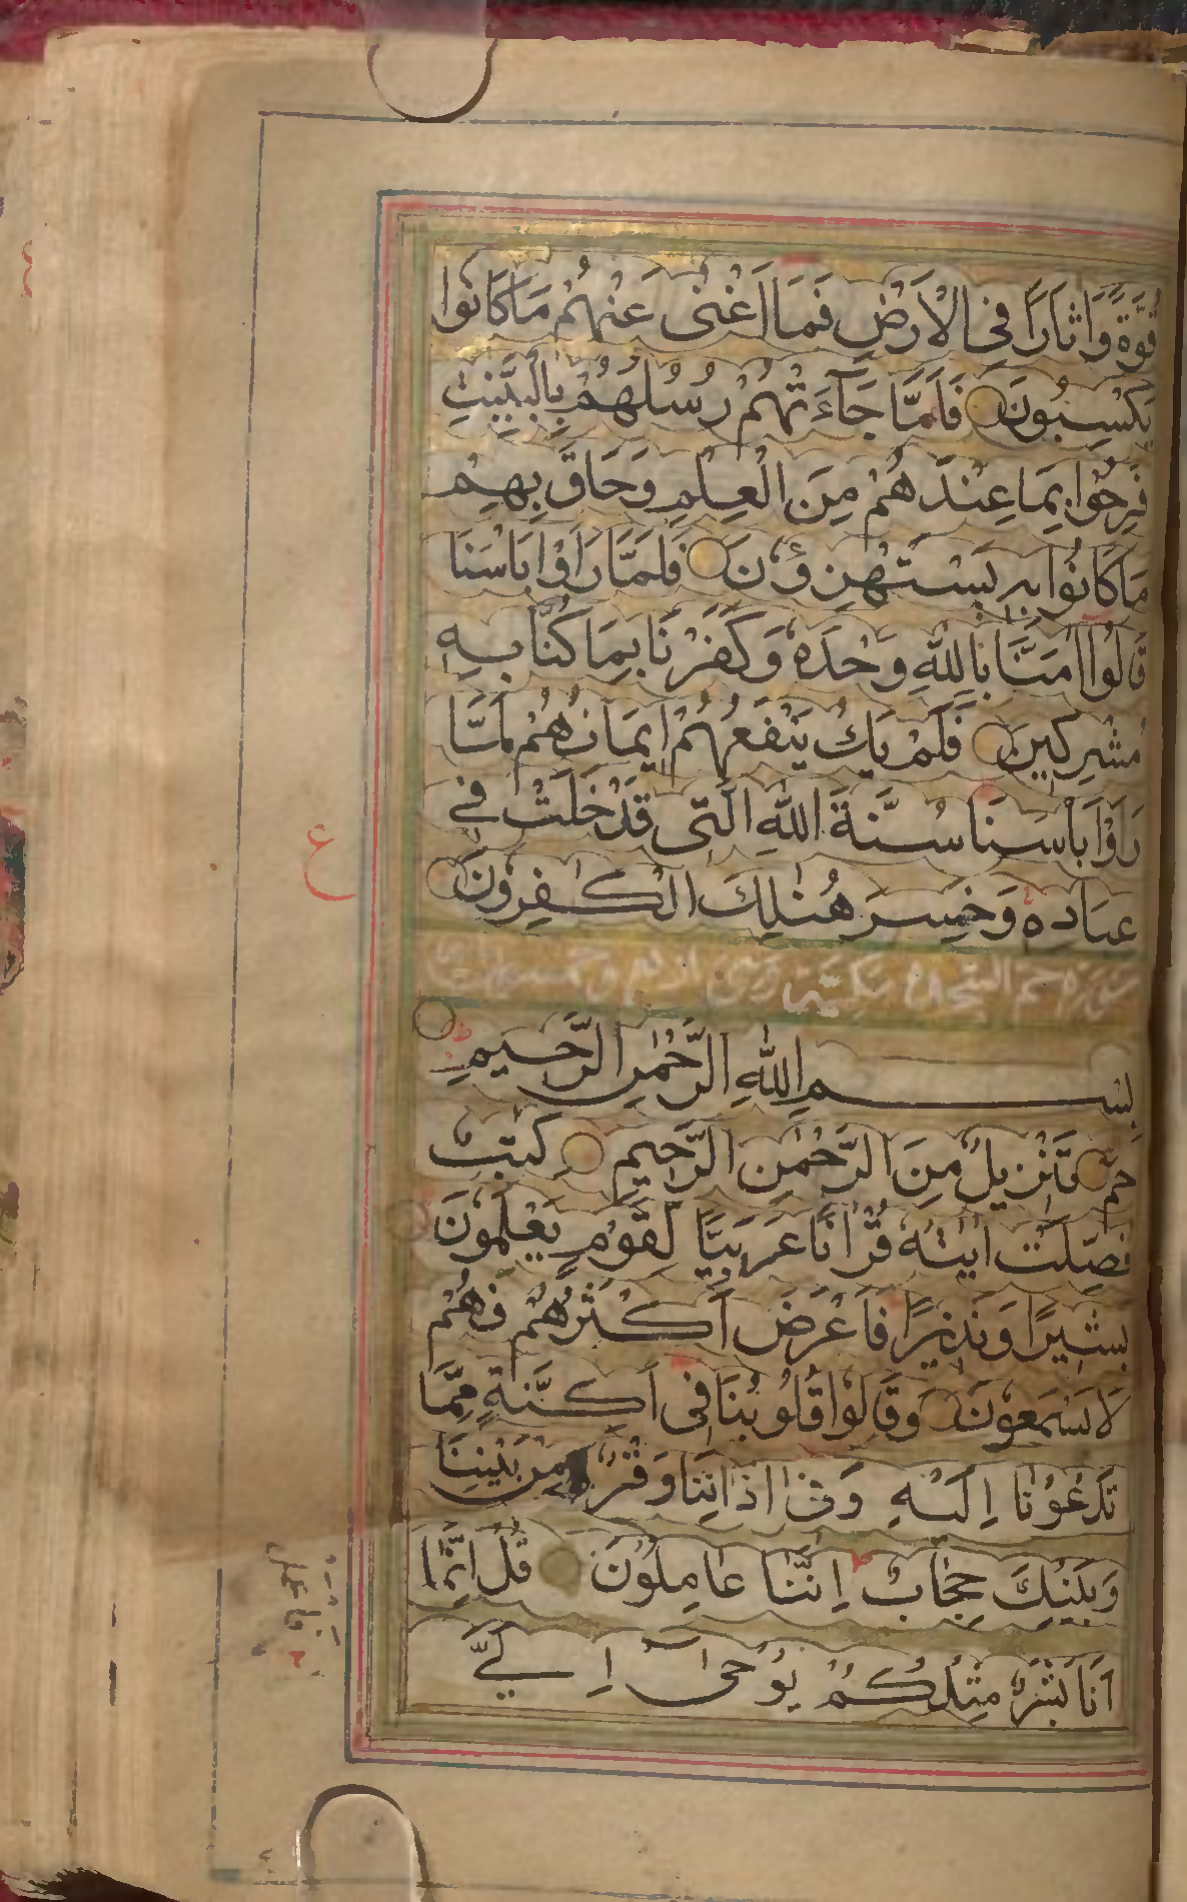 قُوَّةً وَّاٰثَارًا فِى الْاَرْضِ فَمَا اَغْنٰى عَنْهُمْ مَا كَانُوْا
يَكْسِبُوْنَ فَلَمَّا جَآءَتْهُمْ رُسُلُهُمْ بِالْبَيِّنٰتِ
فَرِحُوْا بِمَا عِنْدَهُمْ مِنَ الْعِلْمِ وَحَاقَ بِهِمْ
مَا كَانُوْا بِهٖ يَسْتَهْزِؤُنَ فَلَمَّا رَاَوْا بَاْسَنَا
قَالُوْا اٰمَنَّا بِاللّٰهِ وَحْدَهٗ وَكَفَرْنَا بِمَا كُنَّا بِهٖ
مُشْرِكِيْنَ فَلَمْ يَكُ يَنْفَعُهُمْ اِيْمَانُهُمْ لَمَّا
رَاَوْا بَاْسَنَا سُنَّةَ اللّٰهِ الَّتِى قَدْ خَلَتْ فِى
عِبَادِهٖ وَخَسِرَ هُنٰلِكَ الْكٰفِرُوْنَ
ع
سورة حم السجدة مكية وهى اربع وخمسون
بِسْمِ اللّٰهِ الرَّحْمٰنِ الرَّحِيْمِ
حٰمٓ تَنْزِيْلٌ مِنَ الرَّحْمٰنِ الرَّحِيْمِ كِتٰبٌ
فُصِّلَتْ اٰيٰتُهٗ قُرْاٰنًا عَرَبِيًّا لِقَوْمٍ يَعْلَمُوْنَ
بَشِيْرًا وَنَذِيْرًا فَاَعْرَضَ اَكْثَرُهُمْ فَهُمْ
لَا يَسْمَعُوْنَ وَقَالُوْا قُلُوْبُنَا فِى اَكِنَّةٍ مِمَّا
تَدْعُوْنَا اِلَيْهِ وَفِى اٰذَانِنَا وَقْرٌ وَمِنْ بَيْنِنَا
وَبَيْنِكَ حِجَابٌ اِنَّنَا عَامِلُوْنَ قُلْ اِنَّمَا
اَنَا بَشَرٌ مِثْلُكُمْ يُوْحٰٓى اِلَيَّ